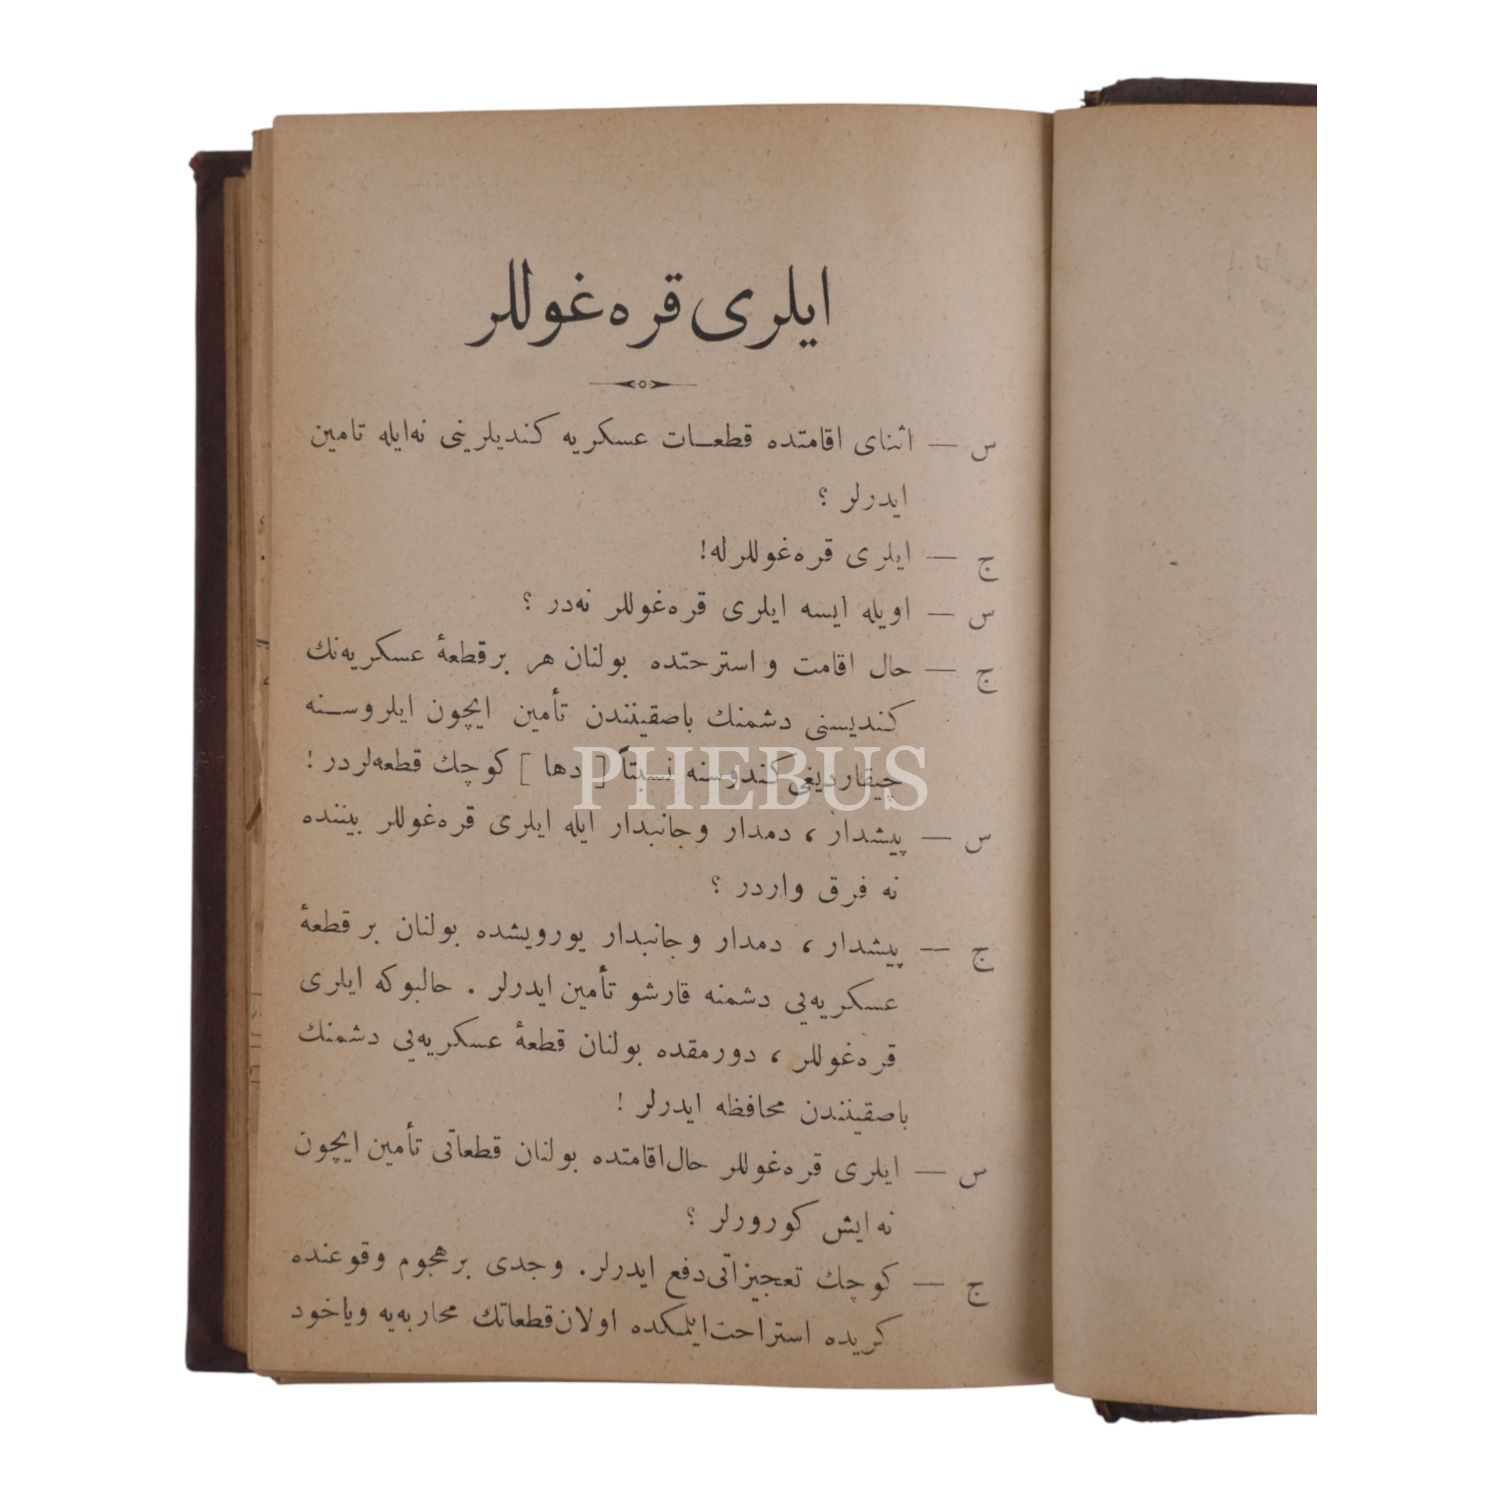 ایلری قره‌غوللر
س — اثنای اقامتده قطعـات عسكریه كندیلرینی نه‌ایله تامین
ایدرلر ؟
ج — ایلری قره‌غوللرله!
س — اویله ایسه ایلری قره‌غوللر نه‌در ؟
ج — حال اقامت و استرحتده بولنان هر برقطعهٔ عسكریه‌نك
كندیسنی دشمنك باصقیننندن تأمین ایچون ایلروسـنه
چیقاردیغی كندوسنه نسبتاً [ دها ] كوچك قطعه‌لردر !
PHEBUS
س — پیشدار ، دمدار وجانبدار ایله ایلری قره‌غوللر بیننده
نه فرق واردر ؟
ج — پیشدار ، دمدار وجانبدار یورویشده بولنان بر قطعهٔ
عسكریه‌یی دشمنه قارشو تأمین ایدرلر . حالبوكه ایلری
قره‌غوللر ، دورمقده بولنان قطعهٔ عسكریه‌یی دشمنك
باصقیننندن محافظه ایدرلر !
س — ایلری قره‌غوللر حال‌اقامتده بولنان قطعاتی تأمین ایچون
نه ایش كورورلر ؟
ج — كوچك تعجیزاتی دفع ایدرلر. وجدی برهجوم وقوعنده
كریده استراحت‌ایلمكده اولان‌قطعاتك محاربه‌یه ویاخود